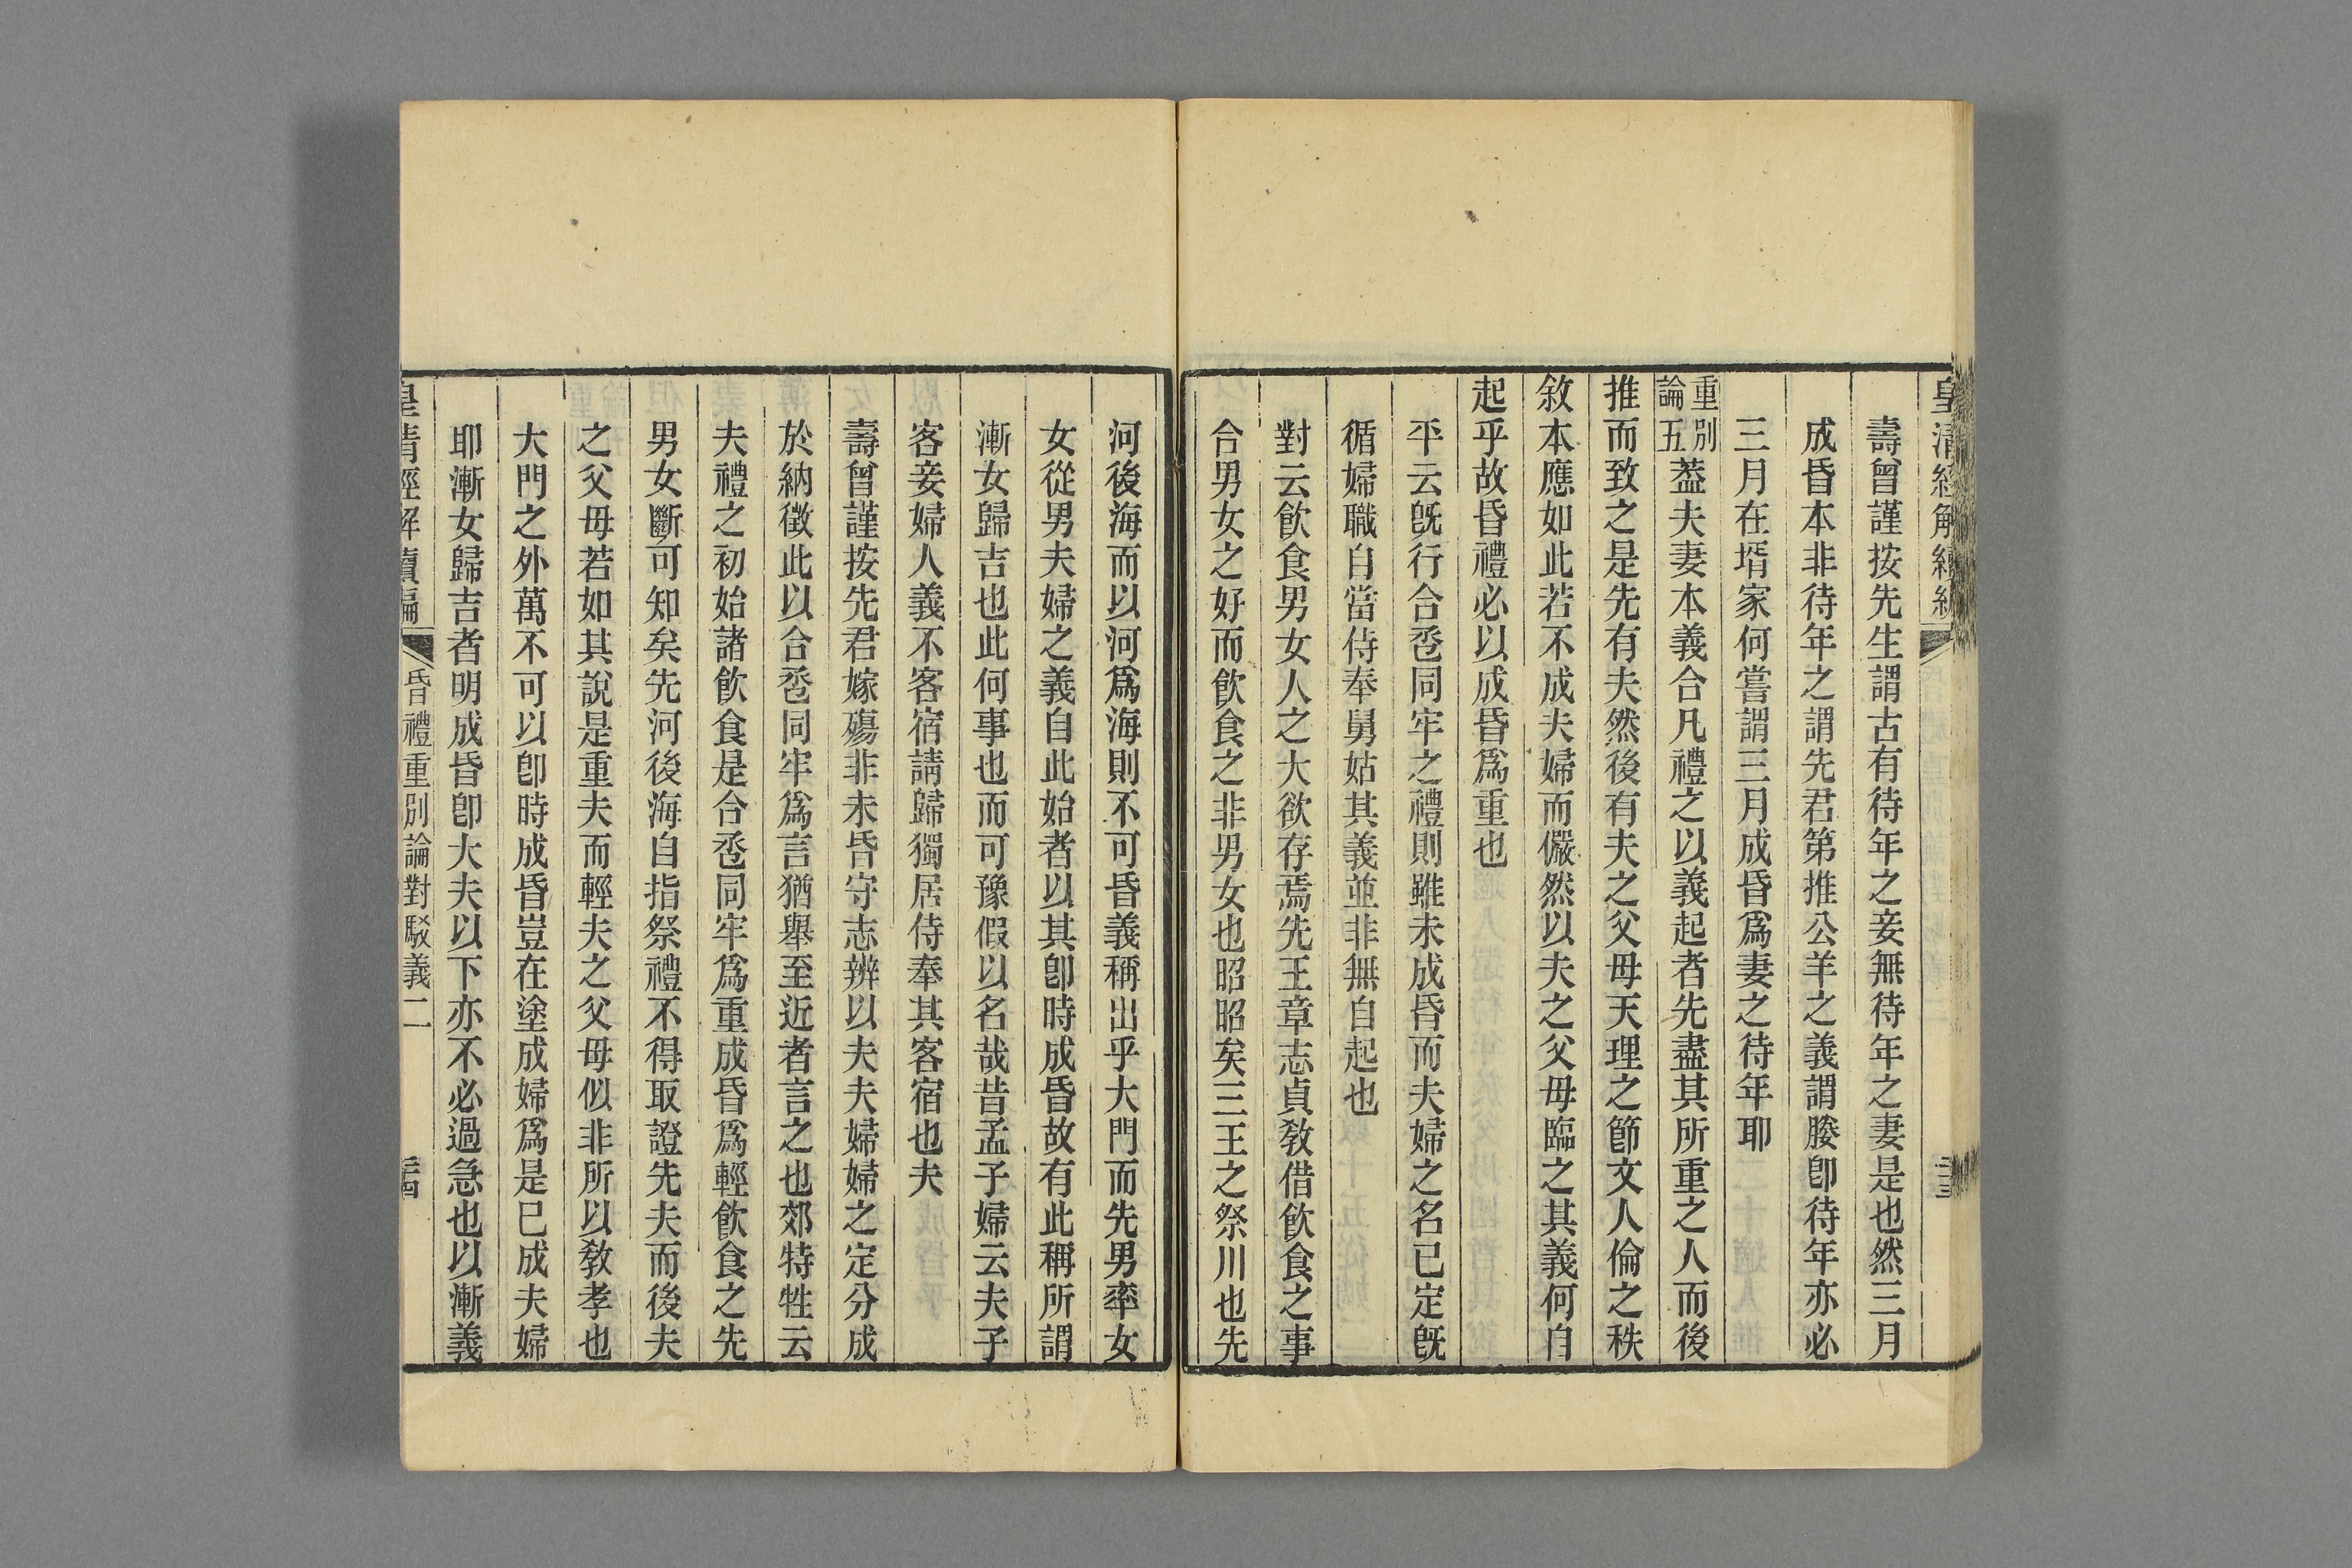 皇清經解續編
壽曾謹按先生謂古有待年之妾無待年之妻是也然三月
成昏本非待年之謂先君第推公羊之義謂媵卽待年亦必
三月在壻家何嘗謂三月成昏爲妻之待年耶
重別論五葢夫妻本義合凡禮之以義起者先盡其所重之人而後
推而致之是先有夫然後有夫之父母天理之節文人倫之秩
敘本應如此若不成夫婦而儼然以夫之父母臨之其義何自
起乎故昏禮必以成昏爲重也
平云旣行合卺同牢之禮則雖未成昏而夫婦之名已定旣
循婦職自當侍奉舅姑其義並非無自起也
對云飮食男女人之大欲存焉先王章志貞敎借飮食之事
合男女之好而飮食之非男女也昭昭矣三王之祭川也先
河後海而以河爲海則不可昏義稱出乎大門而先男率女
女從男夫婦之義自此始者以其卽時成昏故有此稱所謂
漸女歸吉也此何事也而可豫假以名哉昔孟子婦云夫子
客妾婦人義不客宿請歸獨居侍奉其客宿也夫
壽曾謹按先君嫁殤非未昏守志辨以夫夫婦婦之定分成
於納徵此以合卺同牢爲言猶舉至近者言之也郊特牲云
夫禮之初始諸飮食是合卺同牢爲重成昏爲輕飮食之先
男女斷可知矣先河後海自指祭禮不得取證先夫而後夫
之父母若如其說是重夫而輕夫之父母似非所以敎孝也
大門之外萬不可以卽時成昏豈在塗成婦爲是已成夫婦
耶漸女歸吉者明成昏卽大夫以下亦不必過急也以漸義
皇清經解續編 昏禮重別論對駁義二 三四